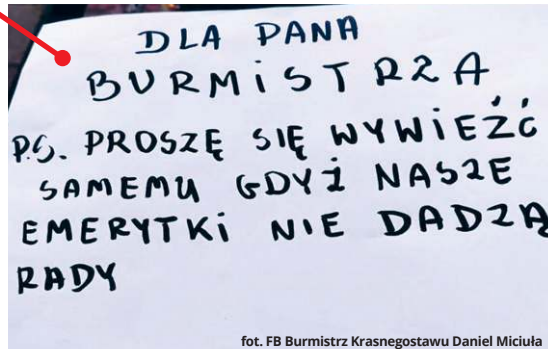 DLA PANA
BURMiSTRZA
P.S. PROSZĘ SIĘ WYWiEŹĆ
SAMEMU GDYŻ NASZE
EMERYTKi NIE DADZĄ
RADY
fot. FB Burmistrz Krasnegostawu Daniel Miciuła